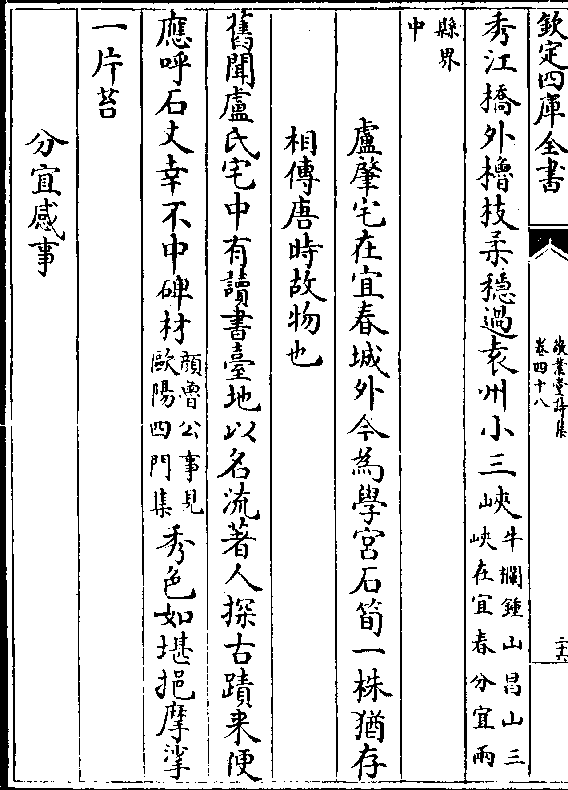 欽定四庫全書
敬業堂詩集
卷四十八
二十六
秀江橋外櫓枝柔穩過袁州小三峽牛欄鍾山昌山三
峽在宜春分宜兩
縣界
中
盧肇宅在宜春城外今為學宮石筍一株猶存
相傳唐時故物也
舊聞盧氏宅中有讀書臺地以名流著人探古蹟来便
應呼石丈幸不中碑材顔魯公事見
歐陽四門集秀色如堪挹摩挲
一片苔
分宜感事